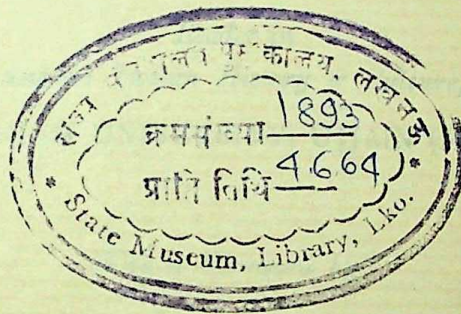 राज्य संग्रहालय पुस्तकालय, लखनऊ
क्रमसंख्या 1893
प्राप्ति तिथि 4.6.64
* State Museum, Library, Lko. *